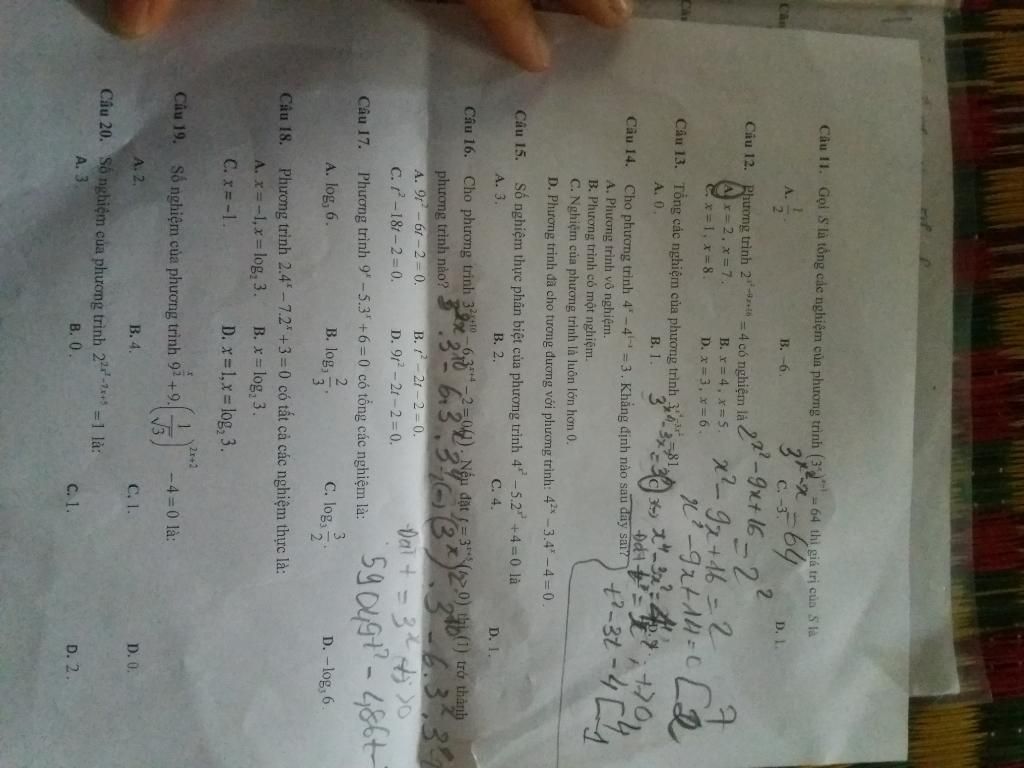 Câu 11. Gọi S là tổng các nghiệm của phương trình = 64 thì giá trị của S là
A. 1/2. B. -6. C. -3. D. 1.
3^{x²-x} = 64
Câu 12. Phương trình 2^{x²-9x+16} = 4 có nghiệm là
A. x = 2, x = 7. B. x = 4, x = 5.
C. x = 1, x = 8. D. x = 3, x = 6.
2^{x²-9x+16} = 2²
x² - 9x + 16 = 2
x² - 9x + 14 = 0 [ 7 2
Câu 13. Tổng các nghiệm của phương trình = 81
A. 0. B. 1.
Câu 14. Cho phương trình 4^x - 4^{1-x} = 3. Khẳng định nào sau đây sai?
A. Phương trình vô nghiệm.
B. Phương trình có một nghiệm.
C. Nghiệm của phương trình là luôn lớn hơn 0.
D. Phương trình đã cho tương đương với phương trình: 4^{2x} - 3.4^x - 4 = 0.
t² - 3t - 4 [ 4 -1
Câu 15. Số nghiệm thực phân biệt của phương trình 4^{x²} - 5.2^{x²} + 4 = 0 là
A. 3. B. 2. C. 4. D. 1.
Câu 16. Cho phương trình 3^{2x+10} - 6.3^{x+4} - 2 = 0 (1). Nếu đặt (t > 0) thì (1) trở thành
phương trình nào?
A. 9t² - 6t - 2 = 0. B. t² - 2t - 2 = 0.
C. t² - 18t - 2 = 0. D. 9t² - 2t - 2 = 0.
Đặt t = 3^x t > 0
59049t² - 486t -
Câu 17. Phương trình 9^x - 5.3^x + 6 = 0 có tổng các nghiệm là:
A. log₃ 6. B. log₃ 2/3. C. log₃ 3/2. D. -log₃ 6.
Câu 18. Phương trình 2.4^x - 7.2^x + 3 = 0 có tất cả các nghiệm thực là:
A. x = -1, x = log₂ 3. B. x = log₂ 3.
C. x = -1. D. x = 1, x = log₂ 3.
Câu 19. Số nghiệm của phương trình 9^{x/2} + 9.(1/√3)^{2x+2} - 4 = 0 là:
A. 2. B. 4. C. 1. D. 0.
Câu 20. Số nghiệm của phương trình 2^{2x²-7x+5} = 1 là:
A. 3. B. 0. C. 1. D. 2.